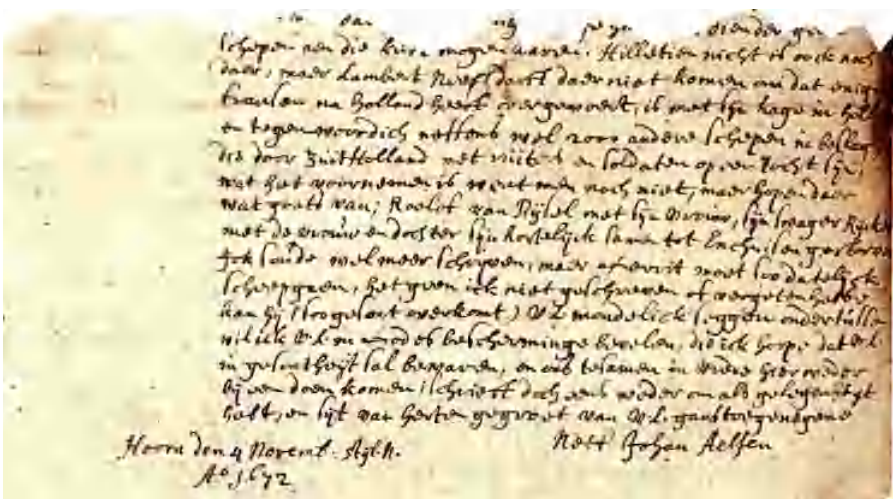 schepen aen die kust mogen waeren. Hilletien nicht is oock noch
daer, maer Lambert Neef darft daer niet komen om dat enige
fransen na Holland heeft overgevoert, is met sijn kage in Holl
en tegenwoordich neffens wel 2000 andere schepen in beslag
die door Zuit Holland met ruiters en soldaten op een tocht sijn,
wat het voornemen is weet men noch niet, maer hopen daer
wat goets van; Roelof van Rijsel met sijn vrou, sijn swager
met de vrouw en dochter sijn kostelijck samen tot Enchuisen gestorven
Ick soude wel meer schrijven, maer moet soo datelijck
scheepgaen, het geen ick niet geschreven of vergeten hebbe
kan hij (soo gesont overkomt) V.L. mondelick seggen ondertussen
wil ick V.L. in Godes bescherminge bevelen, die ick hoope dat V.L.
in gesontheijt sal bewaren, en ons tesamen in vrede hier weder
bij een doen komen: schrieft doch eens weder om als gelegentheijt
heft, en sijt van herten gegroet van V.L. gans toegenegene
Hoorn den 4 Novemb. Stijl. N.
Neef Johan Aelsen
Ao 1672